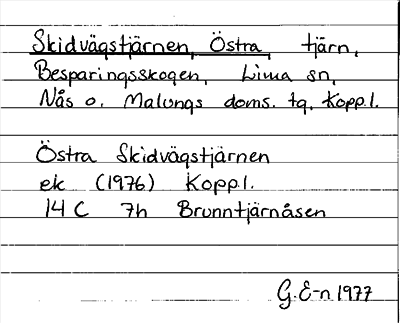 Skidvägstjärnen, Östra, tjärn,
Besparingsskogen, Lima sn,
Nås o. Malungs doms. tg, Koppl.
Östra Skidvägstjärnen
ek (1976) Koppl.
14 C 7h Brunntjärnåsen
G. E-n 1977